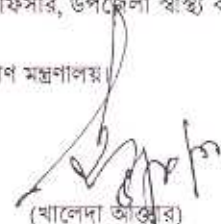 ফিসার, উপজেলা স্বাস্থ্য ক
ণ মন্ত্রণালয়।
(খালেদা আক্তার)